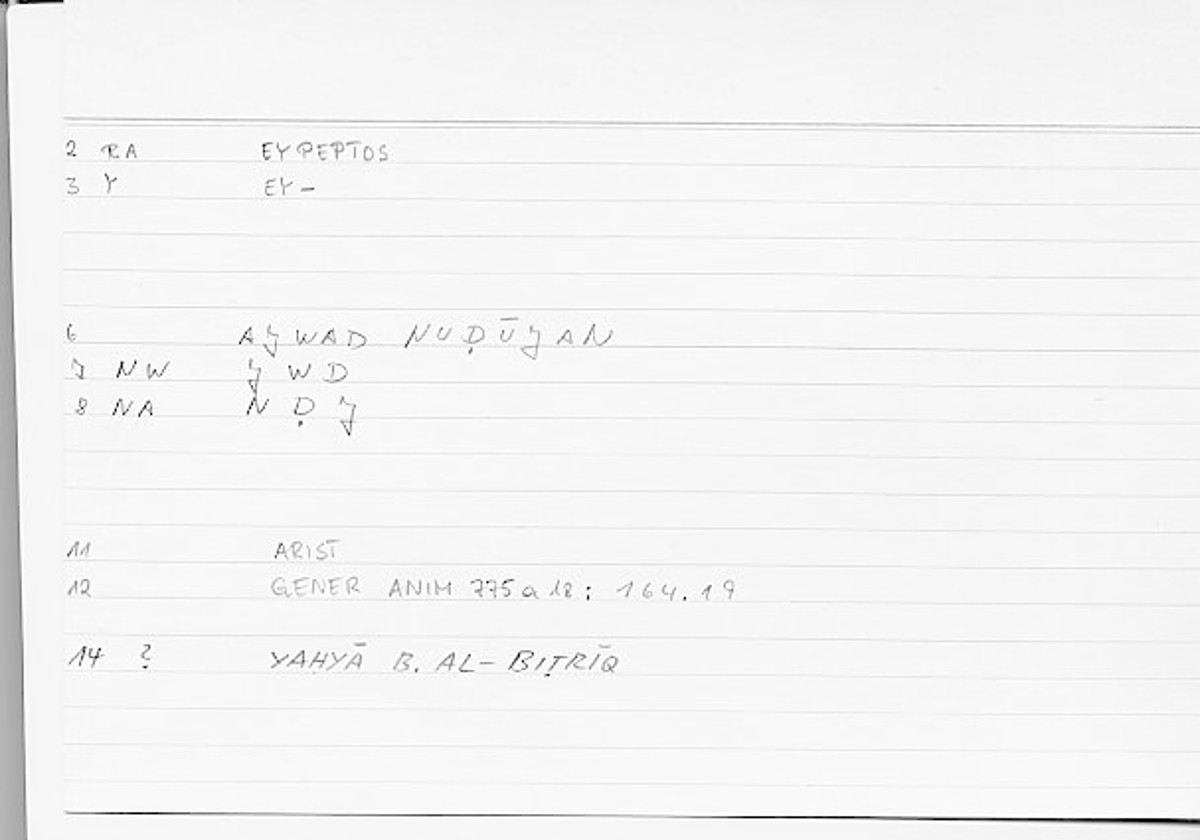 2 RA EYPEPTOS
3 Y EY-
6 AJWAD NUḌŪJAN
7 NW JWD
8 NA NḌJ
11 ARIST
12 GENER ANIM 775a18: 164.19
14 ? YAḤYĀ B. AL-BIṬRĪQ